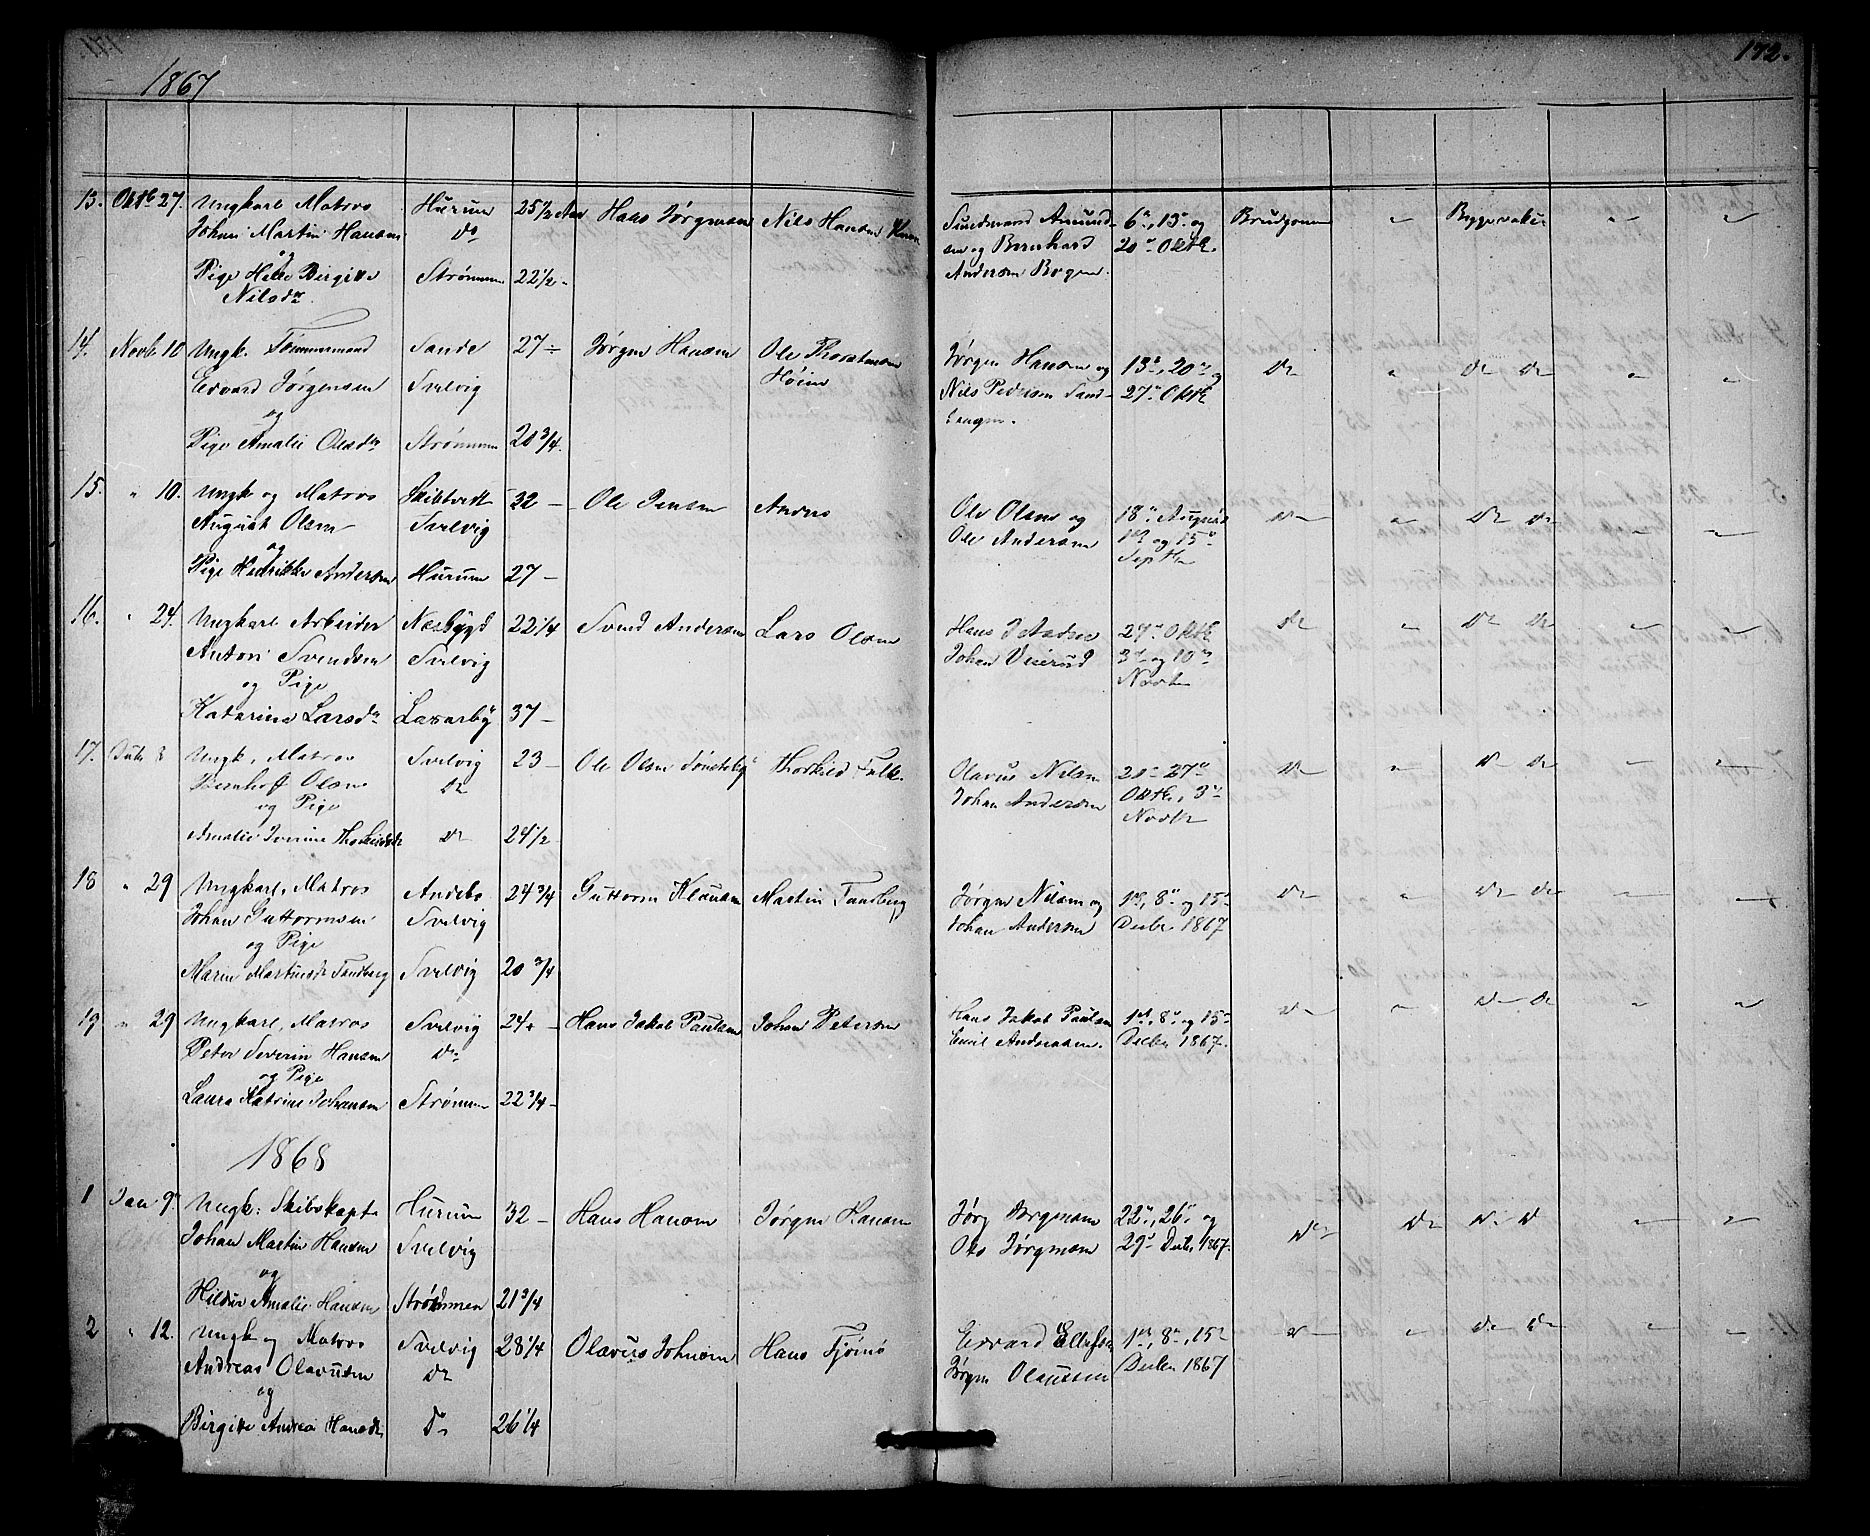 172.
1867
13. Oktb 27. Ungkarl Matros Hurum 25 1/2 Aar Hans Jørgensen Nils Hansen
Johan Martin Hansen Do
og
Pige Helle Birgitte Strømmen 22 1/2 -
Nilsdr
Amund-
sen og Bernhard
Andersen Bogen.
6te, 13de og
20de Oktb.
Brudgommen " "  "
14. Novb 10 Ungk. Tømmermand Sande 27 - Jørgen Hansen Ole
Edvard Jørgensen Svelvig
og
Pige Amalie Olsdr Strømmen 20 3/4.
Jørgen Hansen og
Nils Pedersen Sand-
13de, 20de og
27de Oktb
Do " Do Do " "
15. " 10. Ungk og Matros Skibtvedt 32 - Ole Jensen Anders
August Olsen Svelvig
og
Pige Hedrikke Andersen Hurum 27 -
Ole Olsen og
Ole Andersen
18de August
1ste og 15de
Septbr
Do " Do Do " "
16. " 24. Ungkarl Arbeider Næsbygd 22 1/4 Svend Andersen Lars Olsen
Anton Svendsen Svelvig
og Pige
Katarine Larsdr 37 -
Hans
Johan
27de Oktb
3die og 10de
Novbr
Do " Do Do " "
17. Ungk, Matros Svelvig 23 - Ole Olsen Thorkild Falk
Bernhoff Olsen Do
og Pige
Amalie Iverine Do 24 1/2
Olavus Nilsen
Johan Andersen
20de 27de
Oktbr, 3die
Novbr
Do " Do Do " "
18 " 29 Ungkarl, Matros Andebo 24 3/4 Guttorm Klausen Martin Tandberg
Johan Guttormsen Svelvig
og Pige
Maren Martinsdr Tandberg Svelvig 20 3/4
Jørgen Nilsen og
Johan Andersen
1ste, 8de og 15de
Decbr 1867
Do " Do Do " "
19 " 29 Ungkarl, Matros Svelvig 24 - Hans Jakob Paulsen Johan Petersen
Peter Severin Hansen Do
og Pige
Laura Katrine Johansen Strømmen 22 3/4 -
Hans Jakob Paulsen
Emil Andreasen.
1ste, 8de og 15de
Decbr 1867.
Do " Do Do " "
1868
1 Jan 9. Ungk: Skibskapt. Hurum 32 - Hans Hansen Jørgen Hansen
Johan Martin Hansen Svelvig
og
Amalie Hansen Strømmen 21 3/4
Jørg Jørgensen
Jørgensen
22de, 26de og
29de Decbr 1867.
Do Do Do Do " "
2 " 12. Ungk og Matros Svelvig 28 1/4 Olavus Johnsen Hans
Andreas Olavusen Do
og
Birgitte Andrea Hansdr Do 26 1/4
Edvard Ellefsen
Jørgen Olaussen
1ste, 8de, 15de
Decbr 1867
Do " Do Do " "